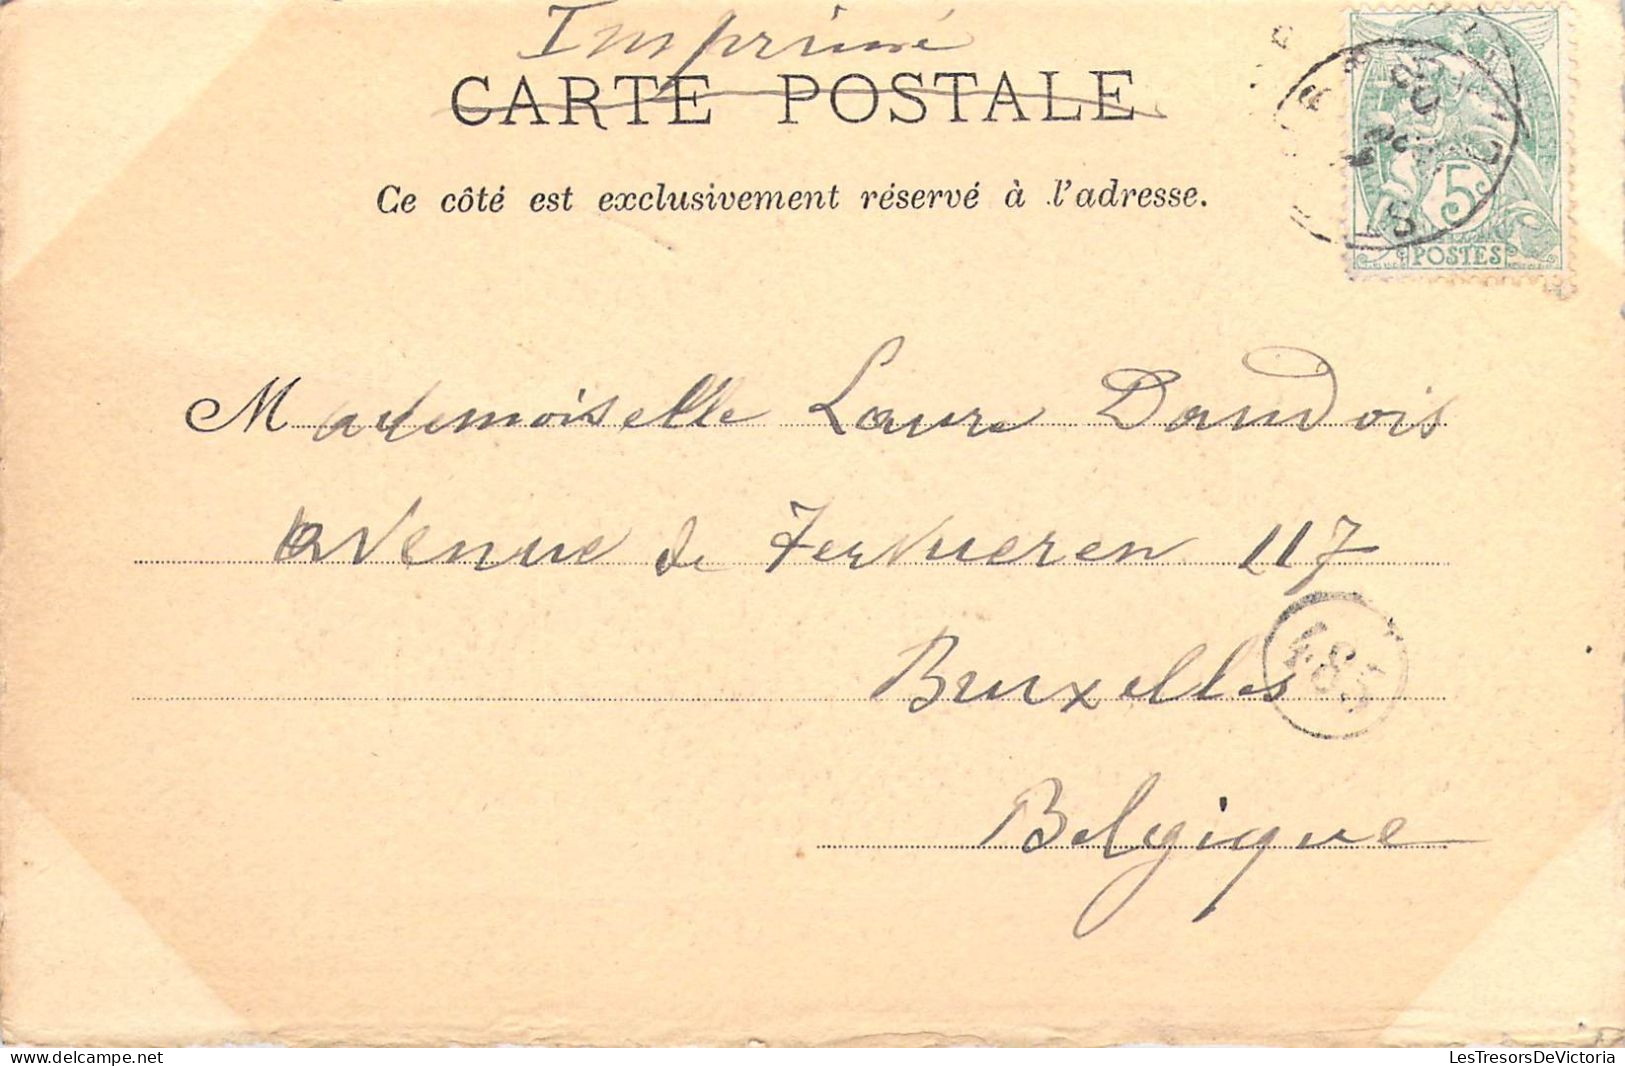 Imprimé
CARTE POSTALE
Ce côté est exclusivement réservé à l'adresse.
5c
POSTES
Mademoiselle Laure Dandois
avenue de Tervueren 117
485
Bruxelles
Belgique
LesTresorsDeVictoria